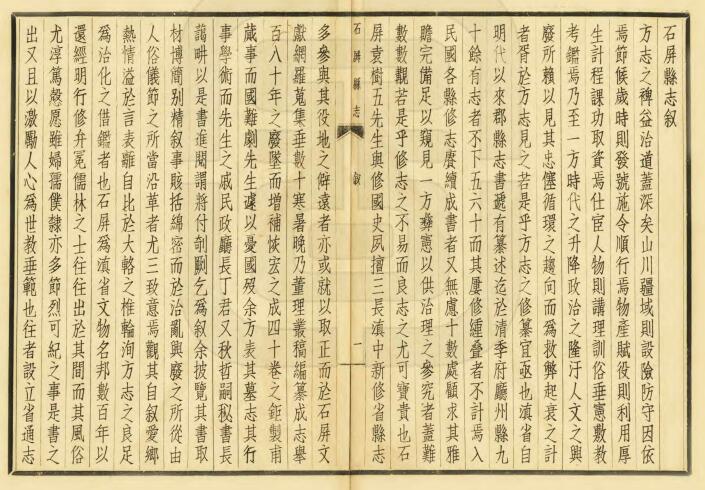 石屏縣志叙
方志之裨益治道蓋深矣山川疆域則設險防守因依
焉節候歲時則發號施令順行焉物產賦役則利用厚
生計程課功取資焉仕宦人物則講理訓俗垂憲敷教
考鑑焉乃至一方時代之升降政治之隆汙人文之興
廢所賴以見其忠僿循環之趨向而為救弊起衰之計
者胥於方志見之若是乎方志之修纂宜亟也滇省自
明代以來郡縣志書遞有纂述迄於清季府廳州縣九
十餘有志者不下五六十而其屢修緟疊者不計焉入
民國各縣修志賡續成書者又無慮十數處顧求其雅
贍完備足以窺見一方彝憲以供治理之參究者蓋難
數數觀若是乎修志之不易而良志之尤可寶貴也石
屏袁樹五先生與修國史夙擅三長滇中新修省縣志
石屏縣志
叙
一
多參與其役地之僻遠者亦或就以取正而於石屏文
獻網羅蒐集垂數十寒暑晚乃董理叢稿編纂成志舉
百八十年之廢墜而增補恢宏之成四十卷之鉅製甫
蕆事而國難劇先生遽以憂國歿余方表其墓志其行
事學術而先生之戚民政廳長丁君又秋哲嗣秘書長
藹畊以是書進閱謂將付剞劂乞為叙余披覽其書取
材博簡別精叙事賅括綿密而於治亂興廢之所從由
人俗儀節之所當沿革者尤三致意焉觀其自叙愛鄉
熱情溢於言表雖自比於大輅之椎輪洵方志之良足
為治化之借鑑者也石屏為滇省文物名邦數百年以
還經明行修弁冕儒林之士往往出於其間而其風俗
尤淳篤愨愿雖婦孺僕隸亦多節烈可紀之事是書之
出又且以激勵人心為世教垂範也往者設立省通志